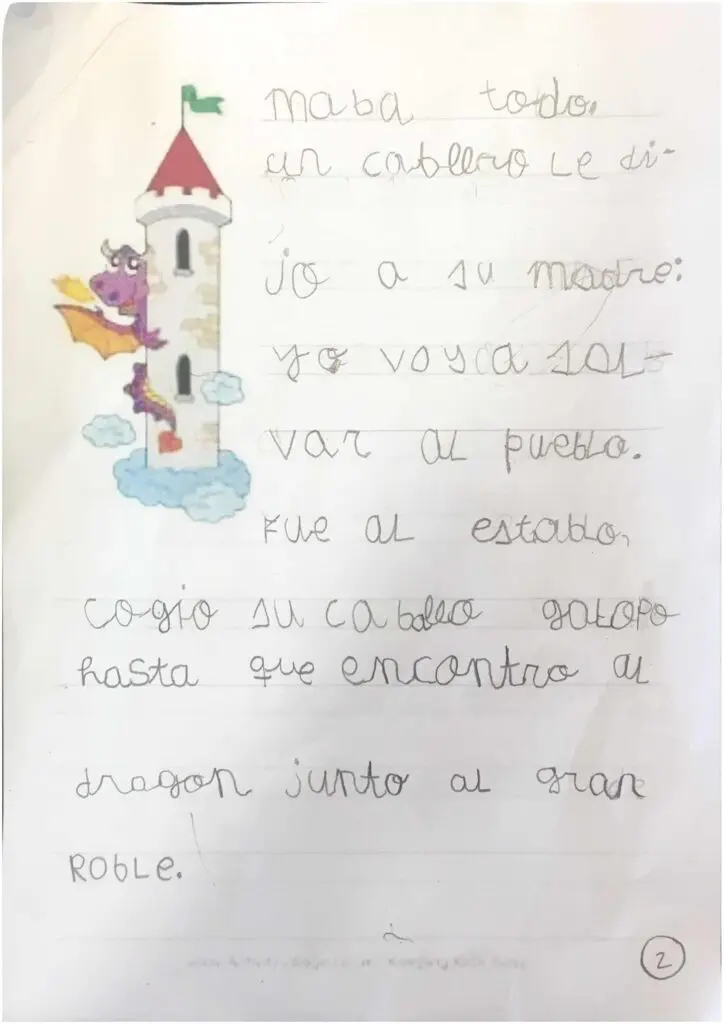 maba todo.
un cabllero Le di-
jo a su madre:
yo voy a saL-
var aL puebLo.
Fue aL estabLo,
cogio su caballo gaLopo
hasta que encontro aL
dragon junto aL gran
RobLe.
2